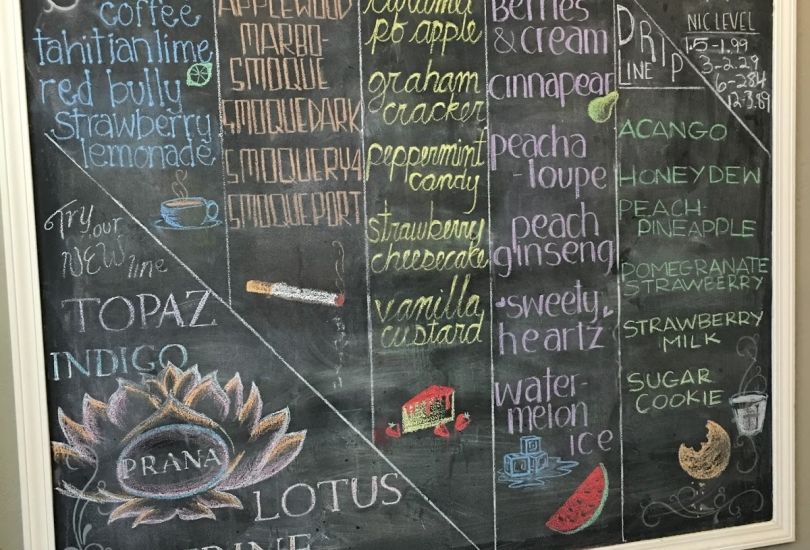 coffee
tahitian lime
red bully
strawberry
lemonade
Try our
NEW line
TOPAZ
INDIGO
PRANA
LOTUS
APPLEWOOD
MARBO-
SMOQUE
SMOQUEDARK
SMOQUERY4
SMOQUEPORT
caramel
pb apple
graham
cracker
peppermint
candy
strawberry
cheesecake
vanilla
custard
Berries
& cream
cinnapear
peacha
-loupe
peach
ginseng
sweety
heartz
water-
melon
ice
DRIP
LINE
NIC LEVEL
1.5-1.99
3-2.29
6-2.84
12-3.89
ACANGO
HONEYDEW
PEACH-
PINEAPPLE
POMEGRANATE
STRAWBERRY
STRAWBERRY
MILK
SUGAR
COOKIE